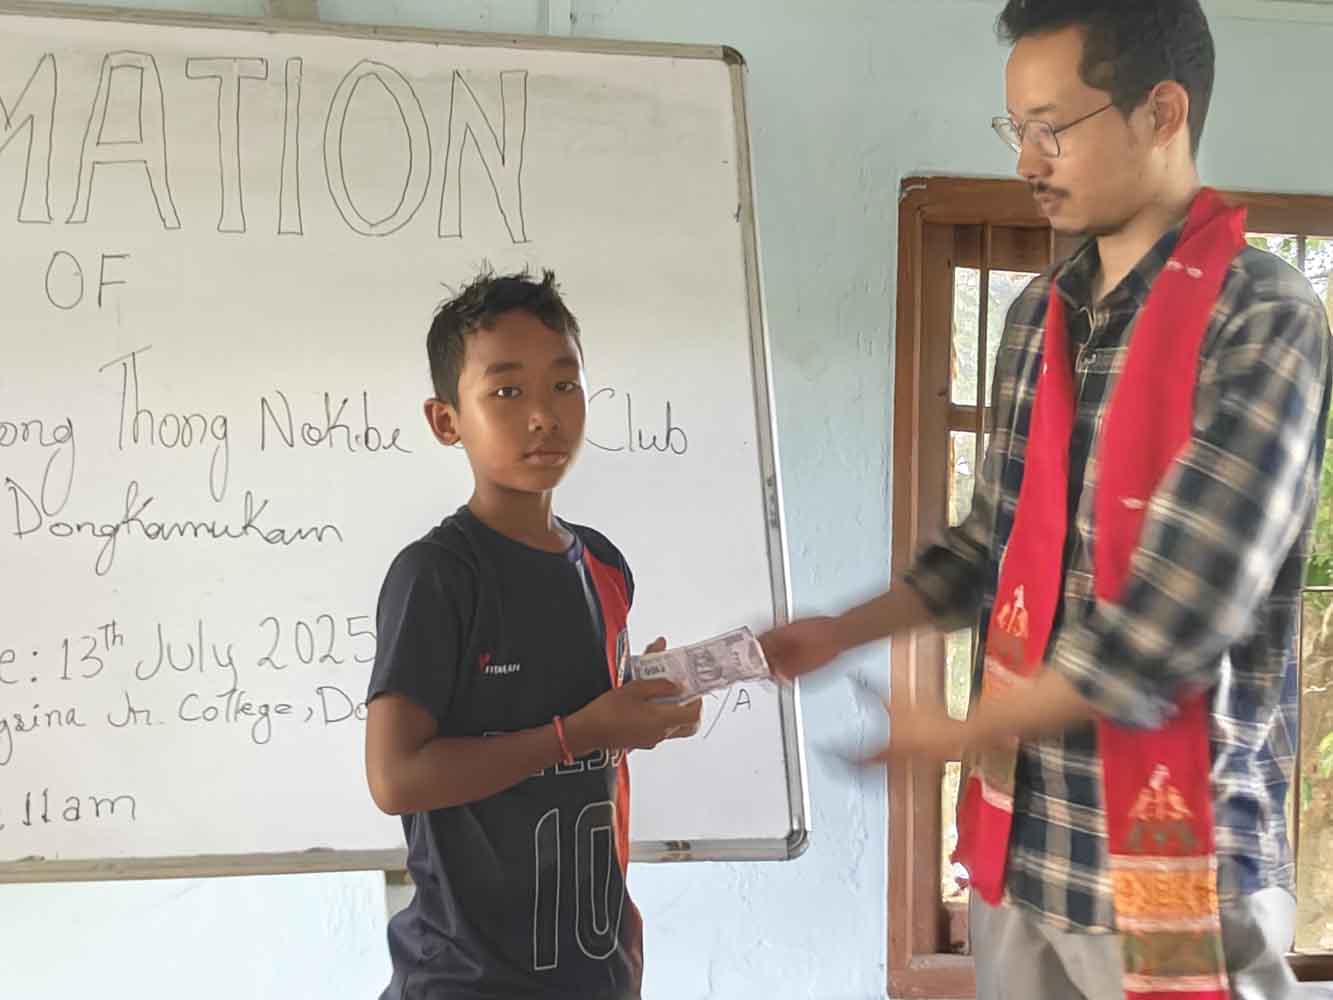 MATION
OF
ong Thong Nokbe Club
Dongkamukam
e: 13th July 2025
gsina Jr. College, Do
/A
: 11am
FITNEAN
10